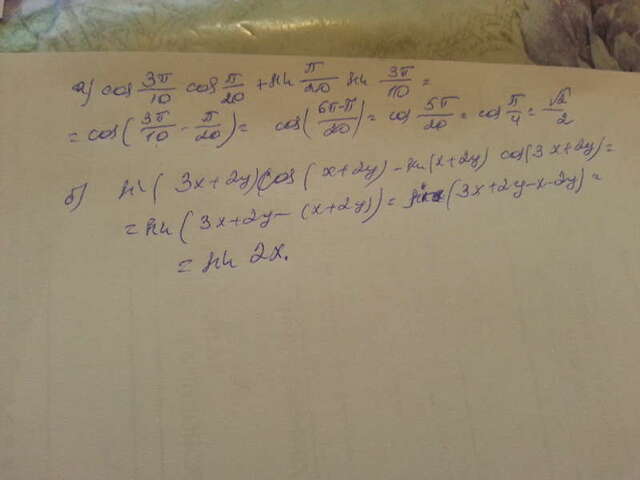 а) cos 3π/10 cos π/20 + sin π/20 sin 3π/10 =
= cos(3π/10 - π/20) = cos(6π-π/20) = cos 5π/20 = cos π/4 = √2/2
б) sin(3x+2y)cos(x+2y) - sin(x+2y) cos(3x+2y) =
= sin(3x+2y-(x+2y)) = sin(3x+2y-x-2y) =
= sin 2x.